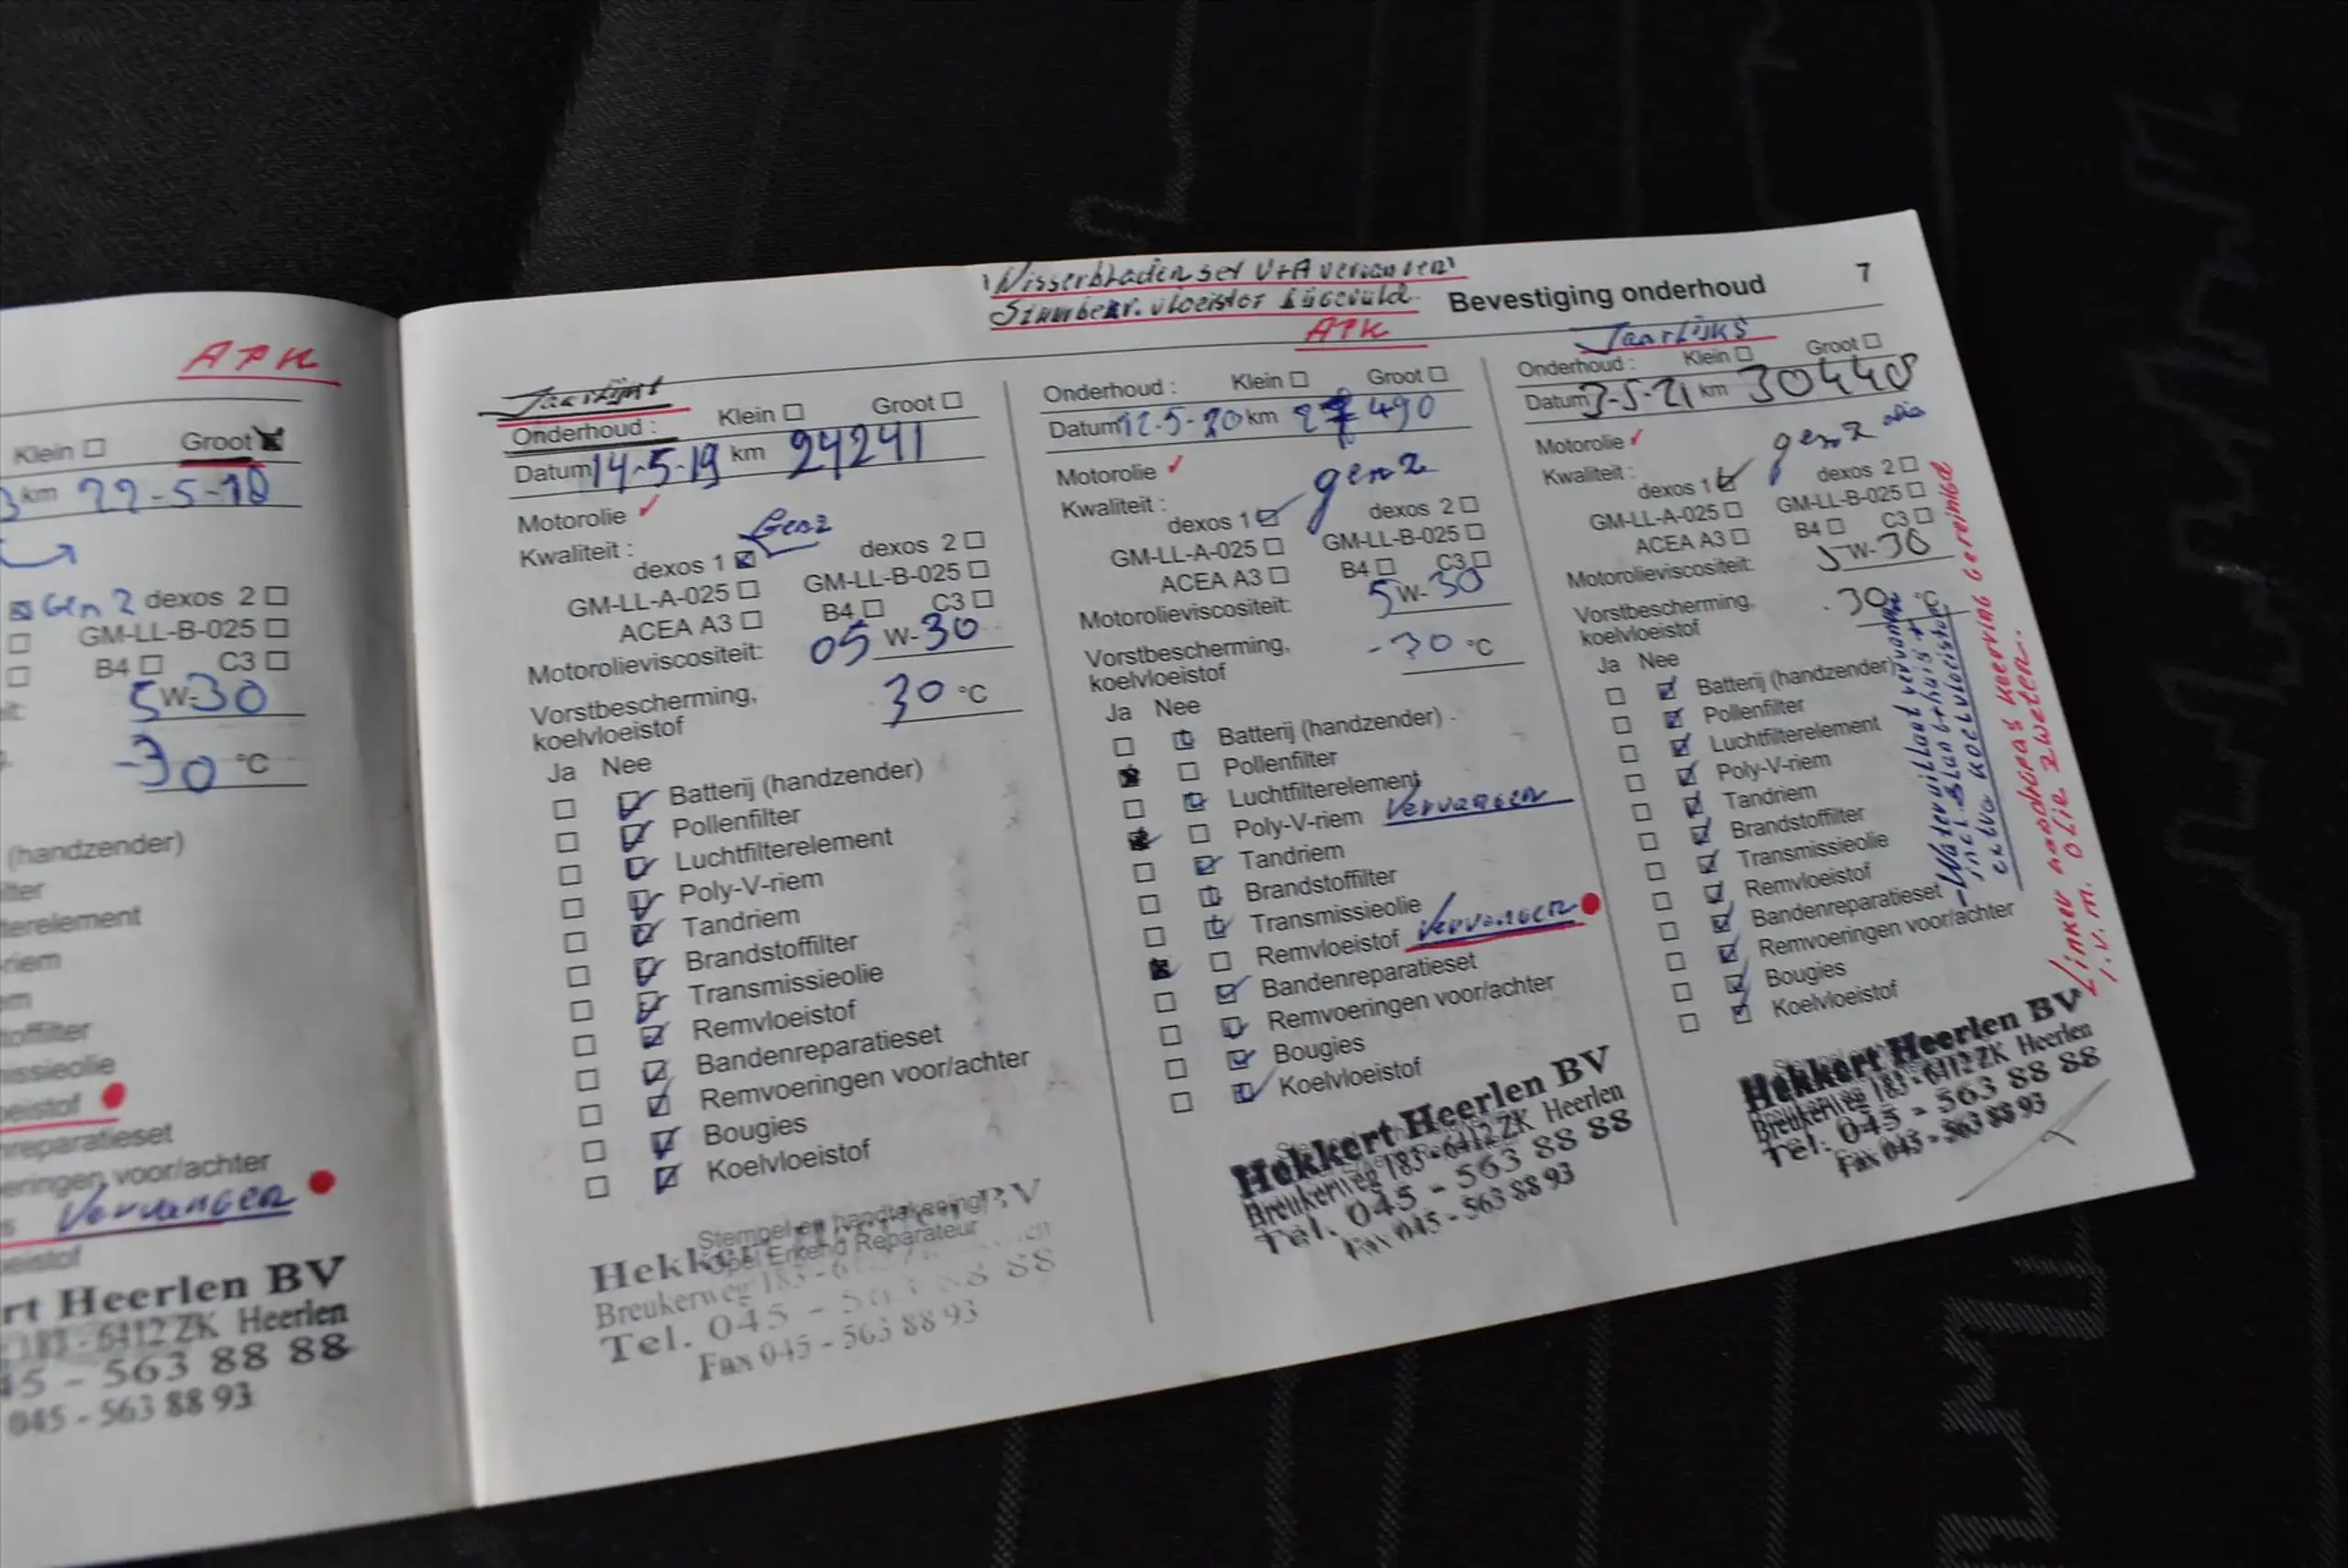 APK
Klein ☐ Groot ☒
km 22-5-18
☒ Gen 2 dexos 2 ☐
☐ GM-LL-B-025 ☐
☐ B4 ☐ C3 ☐
5 W-30
-30 °C
(handzender)
terelement
riem
toffilter
missieolie
eistof
reparatieset
eringen voor/achter
s Vervangen
eistof
rt Heerlen BV
183 - 6412 ZK Heerlen
45 - 563 88 88
045 - 563 88 93
Wisserbladen set V+A vervangen
vloeistof
Bevestiging onderhoud 7
Jaarlijks
Onderhoud : Klein ☐ Groot ☐
Datum 14-5-19 km 24241
Motorolie ✓
Kwaliteit : Gen2
dexos 1 ☒ dexos 2 ☐
GM-LL-A-025 ☐ GM-LL-B-025 ☐
ACEA A3 ☐ B4 ☐ C3 ☐
Motorolieviscositeit: 05 W-30
Vorstbescherming,
koelvloeistof 30 °C
Ja Nee
☐ ☑ Batterij (handzender)
☐ ☑ Pollenfilter
☐ ☑ Luchtfilterelement
☐ ☑ Poly-V-riem
☐ ☑ Tandriem
☐ ☑ Brandstoffilter
☐ ☑ Transmissieolie
☐ ☑ Remvloeistof
☐ ☑ Bandenreparatieset
☐ ☑ Remvoeringen voor/achter
☐ ☑ Bougies
☐ ☑ Koelvloeistof
Stempel en handtekening
Opel Erkend Reparateur
Hekkert Heerlen BV
Breukerweg 183 - 6412 ZK Heerlen
Tel. 045 - 563 88 88
Fax 045 - 563 88 93
APK
Onderhoud : Klein ☐ Groot ☐
Datum 12-5-20 km 27490
Motorolie ✓
Kwaliteit : gen 2
dexos 1 ☑ dexos 2 ☐
GM-LL-A-025 ☐ GM-LL-B-025 ☐
ACEA A3 ☐ B4 ☐ C3 ☐
Motorolieviscositeit: 5 W-30
Vorstbescherming,
koelvloeistof -30 °C
Ja Nee
☐ ☑ Batterij (handzender)
☒ ☐ Pollenfilter
☐ ☑ Luchtfilterelement
☒ ☐ Poly-V-riem Vervangen
☐ ☑ Tandriem
☐ ☑ Brandstoffilter
☐ ☑ Transmissieolie
☒ ☐ Remvloeistof Vervangen
☐ ☑ Bandenreparatieset
☐ ☑ Remvoeringen voor/achter
☐ ☑ Bougies
☐ ☑ Koelvloeistof
Hekkert Heerlen BV
Breukerweg 183 - 6412 ZK Heerlen
Tel. 045 - 563 88 88
Fax 045 - 563 88 93
Jaarlijks
Onderhoud : Klein ☐ Groot ☐
Datum 3-5-21 km 30440
Motorolie ✓
Kwaliteit : gen 2 olie
dexos 1 ☑ dexos 2 ☐
GM-LL-A-025 ☐ GM-LL-B-025 ☐
ACEA A3 ☐ B4 ☐ C3 ☐
Motorolieviscositeit: 5 W-30
Vorstbescherming,
koelvloeistof -30 °C
Ja Nee
☐ ☑ Batterij (handzender)
☐ ☑ Pollenfilter
☐ ☑ Luchtfilterelement
☐ ☑ Poly-V-riem
☐ ☑ Tandriem
☐ ☑ Brandstoffilter
☐ ☑ Transmissieolie
☐ ☑ Remvloeistof
☐ ☑ Bandenreparatieset
☐ ☑ Remvoeringen voor/achter
☐ ☑ Bougies
☐ ☑ Koelvloeistof
- Wateruitlaat vervangen
incl. Slang + huis +
extra koelvloeistof
Linker aandrijfas keerring gereinigd
i.v.m. olie zweten.
Hekkert Heerlen BV
Breukerweg 183 - 6412 ZK Heerlen
Tel. 045 - 563 88 88
Fax 045 - 563 88 93